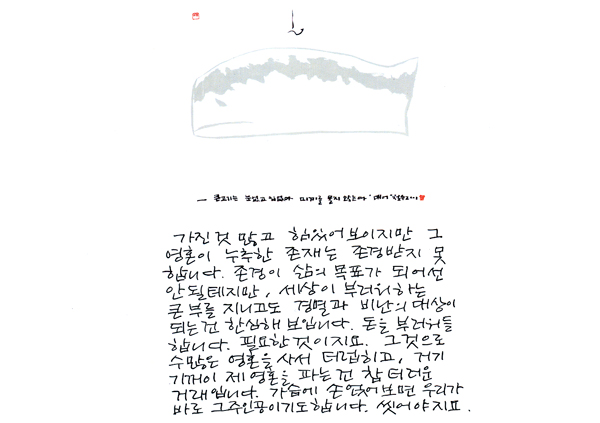 — 큰고기는 미끼를 물지 않는다 '대어'
가진것 많고 힘있어 보이지만 그
영혼이 누추한 존재는 존경받지 못
합니다. 존경이 삶의 목표가 되어선
안될테지만, 세상이 부러워하는
큰 부를 지니고도 경멸과 비난의 대상이
되는건 한심해 보입니다. 돈을 부러워들
합니다. 필요한 것이지요. 그것으로
수많은 영혼을 사서 더럽히고, 거기
기꺼이 제 영혼을 파는건 참 더러운
거래입니다. 가슴에 손얹어보면 우리가
바로 그주인공이기도합니다. 씻어야지요.